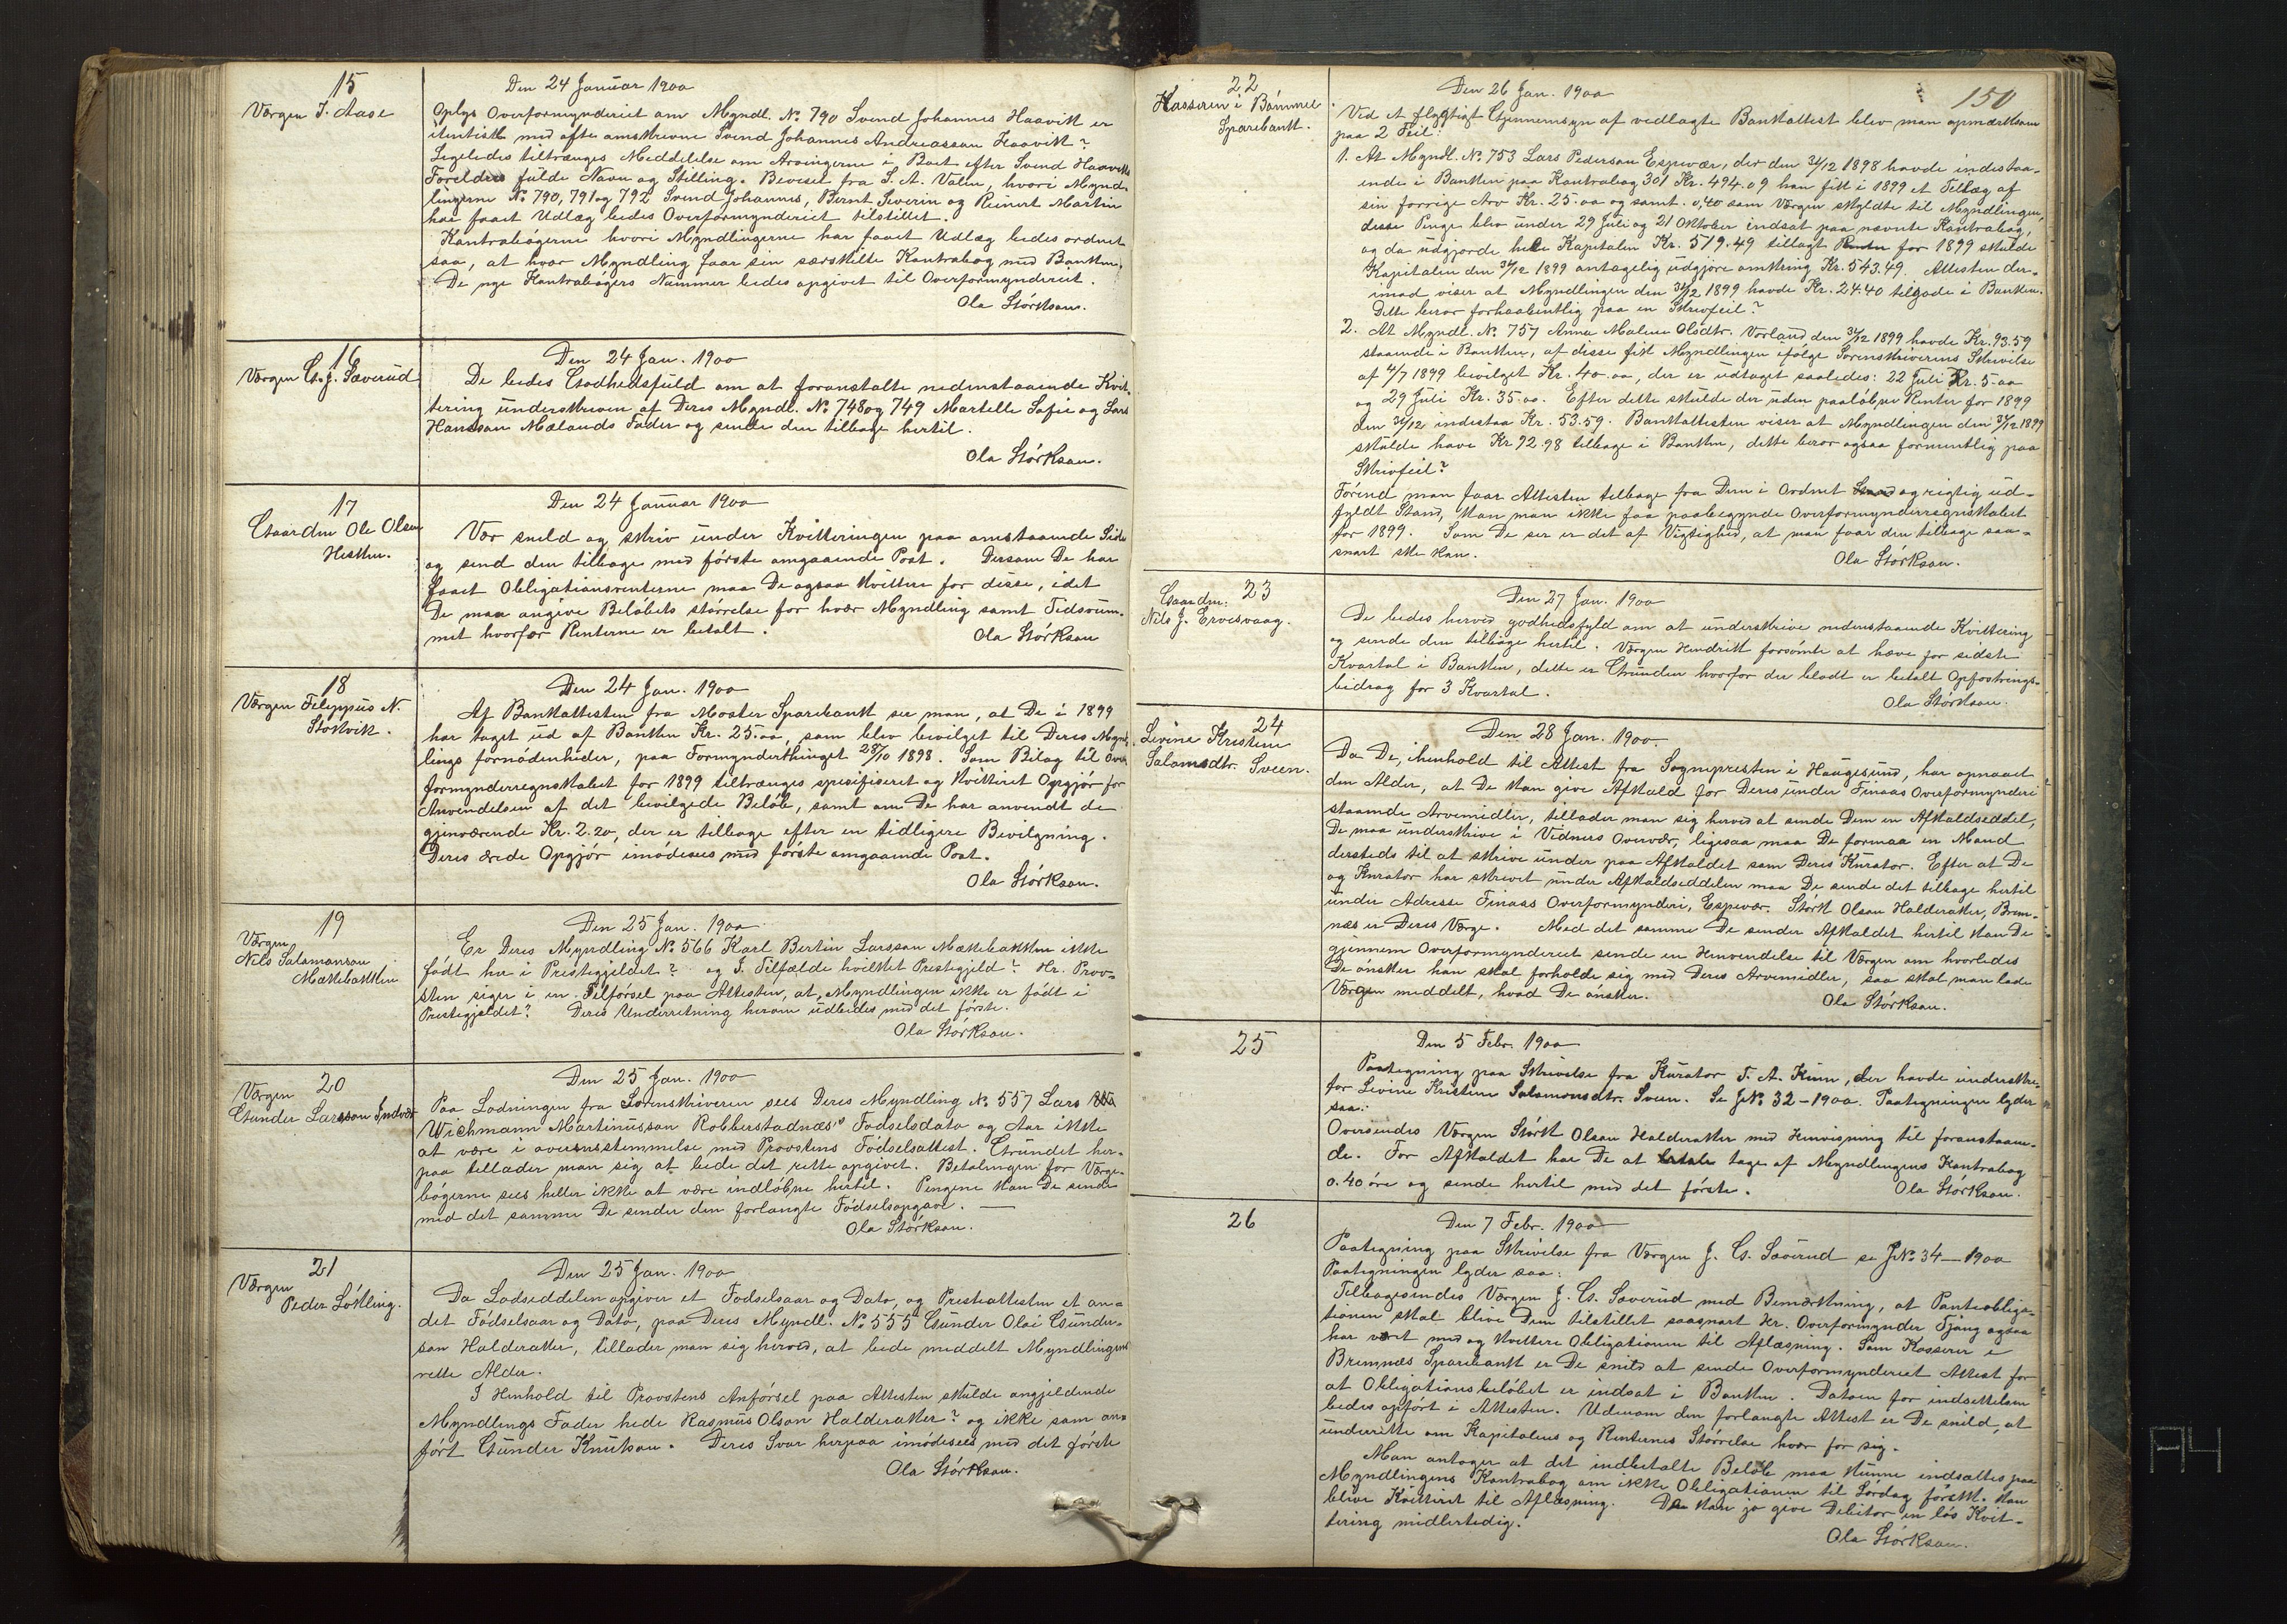 15
Værgen J. Aase
Den 24 Januar 1900
Oplys Overformynderiet om Myndl. No 790 Svend Johannes Haavik er
itentisk med ofte omskrevne Svend Johannes Andreasson Haavik?
Ligeledes tiltrænges Meddelelse om Arvingerne i Boet efter Svend Haaviks
Foreldres fulde Navn og Stilling. Beviset fra S. A. Valen, hvori Mynd-
lingerne No 790, 791 og 792 Svend Johannes, Bernt Severin og Reinert Martin
har faaet Udlæg bedes Overformynderiet tilstillet.
Kontrabøgerne hvori Myndlingerne har faaet Udlæg bedes ordnet
saa, at hvor Myndling faar sin særskilte Kontrabog med Banken.
De nye Kontrabøgers Nummer bedes opgivet til Overformynderiet.
Ola Størkson.
16
Værgen G. J. Sæverud
Den 24 Jan. 1900
De bedes Godhedsfuld om at foranstalte nedenstaaende Kvit-
tering underskreven af Deres Myndl. No 748 og 749 Martelle Sofie og Lars
Hansson Mælands Fader og sende den tilbage hertil.
Ola Størkson.
17
Gaardm Ole Olsen
Hesken.
Den 24 Januar 1900
Vær snild og skriv under Kvitteringen paa omstaaende Side
og send den tilbage med første omgaaende Post. Dersom De har
faaet Obligationsrenterne maa De ogsaa kvittere for disse, idet
De maa angive Beløbets størrelse for hvær Myndling samt Tidsrum-
met hvorfor Renterne er betalt.
Ola Størkson
18
Værgen Filippus N.
Stokvik.
Den 24 Jan. 1900
Af Bankattesten fra Moster Sparebank ser man, at De i 1899
har taget ud af Banken Kr. 25.00, som blev bevilget til Deres Mynd-
lings fornødenheder, paa Formynderthinget 28/10 1898. Som Bilag til Over-
formynderregnskabet for 1899 tiltrænges spesifiseret og kvitteret Opgjør for
Anvendelsen af det bevilgede Beløb, samt om De har anvendt de
gjenværende Kr. 2.20, der er tilbage efter en tidligere Bevilgning.
Deres ærede Opgjør imødesees med første omgaaende Post.
Ola Størkson.
19
Værgen
Nils Salamonson
Mækebakken
Den 25 Jan. 1900
Er Deres Myndling No 566 Karl Bertin Larsson Mækebakken ikke
født her i Prestegjeldet? og I. Tilfælde hvilket Prestegjeld? Hr. Prov-
sten siger i en Tilførsel paa Attesten, at Myndlingen ikke er født i
Prestegjeldet? Deres Underretning herom udbedes med det første.
Ola Størkson.
20
Værgen
Gunder Larsson Indvær
Den 25 Jan. 1900
Paa Ladningen fra Sorenskriveren sees Deres Myndling No 557 Lars
Wichmann Martinusson Robberstadnæs' Fødselsdato og Aar ikke
at være i overensstemmelse med Provstens Fødselsattest. Grundet her-
paa tillader man sig at bede det rette opgivet. Betalingen for Værge-
bøgerne sees heller ikke at være indløbne hertil. Pengene kan De sende
med det samme De sender den forlangte Fødselsopgave.
Ola Størkson.
21
Værgen
Peder Løkling.
Den 25 Jan. 1900
Da Ladseddelen opgiver et Fødselsaar og Dato, og Presteattesten et an-
det Fødselsaar og Dato, paa Deres Myndl. No 555 Gunder Olai Gunder-
son Halderaker, tillader man sig herved, at bede meddelt Myndlingens
rette Alder.
I Henhold til Provstens Anførsel paa Attesten skulde angjeldende
Myndlings Fader hede Rasmus Olson Halderaker? og ikke som an-
ført Gunder Knutson. Deres Svar herpaa imødesees med det første
Ola Størkson.
150
22
Kasseren i Bømmel
Sparebank.
Den 26 Jan. 1900
Ved et flygtigt Gjennemsyn af vedlagte Bankattest blev man opmærksom
paa 2 Feil:
1. At Myndl. No 753 Lars Pederson Espevær, der den 31/12 1898 havde indestaa-
ende i Banken paa Kontrabog 301 Kr. 494.09 han fik i 1899 et Tillæg af
sin forrige Arv Kr. 25.00 og samt. 0,40 som Værgen skyldte til Myndlingen,
disse Penge blev under 29 Juli og 21 Oktober indsat paa nævnte Kontrabog,
og da udgjorde hele Kapitalen Kr. 519.49 tillagt Renten for 1899 skulde
Kapitalen den 31/12 1899 antagelig udgjøre omkring Kr. 543.49. Attesten der-
imod viser at Myndlingen den 31/12 1899 havde Kr. 24.40 tilgode i Banken.
Dette beror forhaabentlig paa en Skrivfeil?
2. At Myndl. No. 757 Anna Malene Olsdtr. Vorland den 31/12 1899 havde Kr. 93.59
staaende i Banken, af disse fik Myndlingen ifølge Sorenskriverens Skrivelse
af 4/7 1899 bevilget Kr. 40.00, der er udtaget saaledes: 22 Juli Kr. 5.00
og 29 Juli Kr. 35.00. Efter dette skulde der uden paaløbne Renter for 1899
den 31/12 indestaa Kr. 53.59. Bankattesten viser at Myndlingen den 31/12 1899
skulde have Kr 92.98 tilbage i Banken, dette beror ogsaa formentlig paa
Skrivfeil?
Førend man faar Attesten tilbage fra Dem i Ordnet og rigtig ud-
fyldt Stand, kan man ikke faa paabegynde Overformynderregnskabet
for 1899. Som De ser er det af Vigtighed, at man faar den tilbage saa-
snart ske kan.
Ola Størkson.
23
Gaardm.
Nils J. Ervesvaag.
Den 27 Jan. 1900
De bedes herved godhedsfyld om at underskrive nedenstaaende Kvittering
og sende den tilbage hertil. Værgen Hendrik forsømte at hæve for sidste
Kvartal i Banken, dette er Grunden hvorfor der blodt er betalt Opfostrings-
bidrag for 3 Kvartal.
Ola Størkson.
24
Levine Kristine
Salomsdtr. Sveen.
Den 28 Jan. 1900.
Da De, ihenhold til Attest fra Sognepresten i Haugesund, har opnaaet
den Alder, at De kan give Afkald for Deres under Finaas Overformynderi
staaende Arvemidler, tillader man sig herved at sende Dem en Afkaldseddel,
De maa underskrive i Vidners Overvær, ligesaa maa De formaa en Mand
dersteds til at skrive under paa Afkaldet som Deres Kurator. Efter at De
og Kurator har skrevet under Afkaldseddelen maa De sende det tilbage hertil
under Adresse Finaas Overformynderi, Espevær. Størk Olson Halderaker, Brem-
næs er Deres Værge. Med det samme De sender Afkaldet hertil kan De
gjennem Overformynderiet sende en Henvendelse til Værgen om hvorledes
De ønsker han skal forholde sig med Deres Arvemidler, saa skal man lade
Værgen meddelt, hvad De ønsker.
Ola Størkson.
25
Den 5 Febr. 1900
Paategning paa Skrivelse fra Kurator T. A. Kinn, der havde underskre-
for Levine Kristine Salomonsdtr. Sveen. Se JNo 32-1900. Paategningen lyder
saa:
Oversendes Værgen Størk Olson Halderaker med Henvisning til foranstaaen-
de. For Afkaldet har De at tage af Myndlingens Kontrabog
0.40 øre og sende hertil med det første.
Ola Størkson.
26
Den 7 Febr. 1900
Paategning paa Skrivelse fra Værgen J. G. Sæverud se JNo 34-1900
Paategningen lyder saa:
Tilbagesendes Værgen J. G. Sæverud med Bemærkning, at Panteobliga-
tionen skal blive Dem tilstillet saasnart Hr. Overformynder Fjang ogsaa
har vært med og kvittere Obligationen til Aflæsning. Som Kasserer i
Bremnæs Sparebank er De snild at sende Overformynderiet Attest for
at Obligationsbeløbet er indsat i Banken. Datoen for indsettelsen
bedes opført i Attesten. Udenom den forlangte Attest er De snild, at
underrette om Kapitalens og Renternes Størrelse hvor for sig.
Man antager at det indbetalte Beløb maa kunne indsættes paa
Myndlingens Kontrabog om ikke Obligationen til Lørdag førstk. kan
blive Kvitteret til Aflæsning. De kan jo give Debitor en løs Kvit-
tering midlertedig.
Ola Størkson.